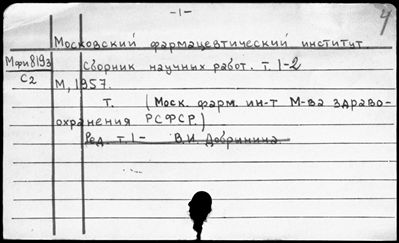 -1-
4
Московский фармацевтический институт.
Мф8193
С2
Сборник научных работ. т. 1-2
М, 1957.
т. (Моск. фарм. ин-т М-ва здраво-
охранения РСФСР)
Ред. т. 1- В.И. Добрынина